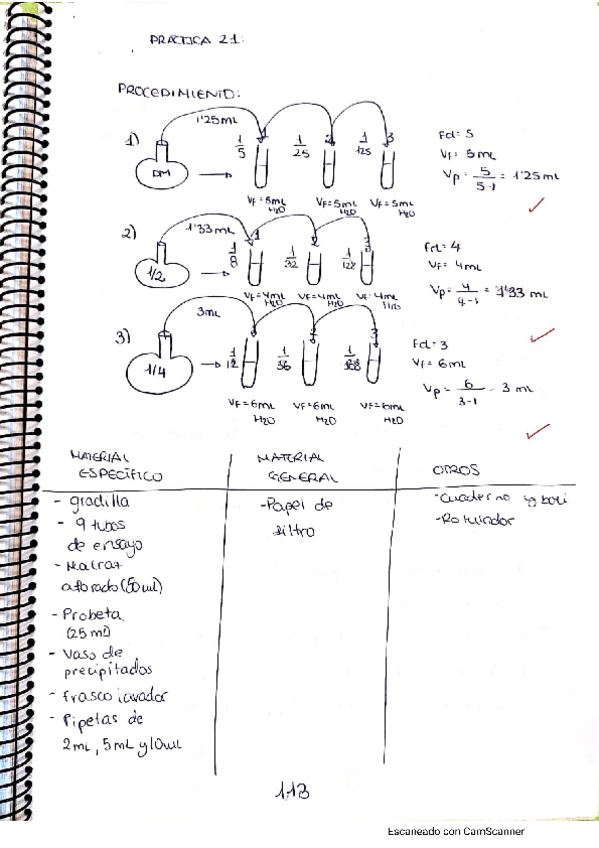 PRÁCTICA 21:
PROCEDIMIENTO:
1'25mL
1)
DM
1/5
1/25
1/125
3
VF=5mL
H2O
VF=5mL
H2O
VF=5mL
H2O
Fcl=5
VF=5mL
Vp= 5/5-1 = 1'25mL
2)
1'33mL
1/2
1/8
1/32
1/128
VF=4mL
H2O
VF=4mL
H2O
VF=4mL
H2O
Fcl=4
VF=4mL
Vp= 4/4-1 = 1'33 mL
3)
3mL
1/4
1/12
1/36
VF=6mL
H2O
VF=6mL
H2O
VF=6mL
H2O
Fcl=3
VF=6mL
Vp= 6/3-1 = 3 mL
MATERIAL
ESPECÍFICO
- gradilla
- 9 tubos
de ensayo
- Matraz
aforado (50ml)
- Probeta
(25ml)
- Vaso de
precipitados
- frasco lavador
- Pipetas de
2mL, 5mL y 10mL
MATERIAL
GENERAL
-Papel de
filtro
OTROS
-Cuaderno y boli
-Rotulador
113
Escaneado con CamScanner